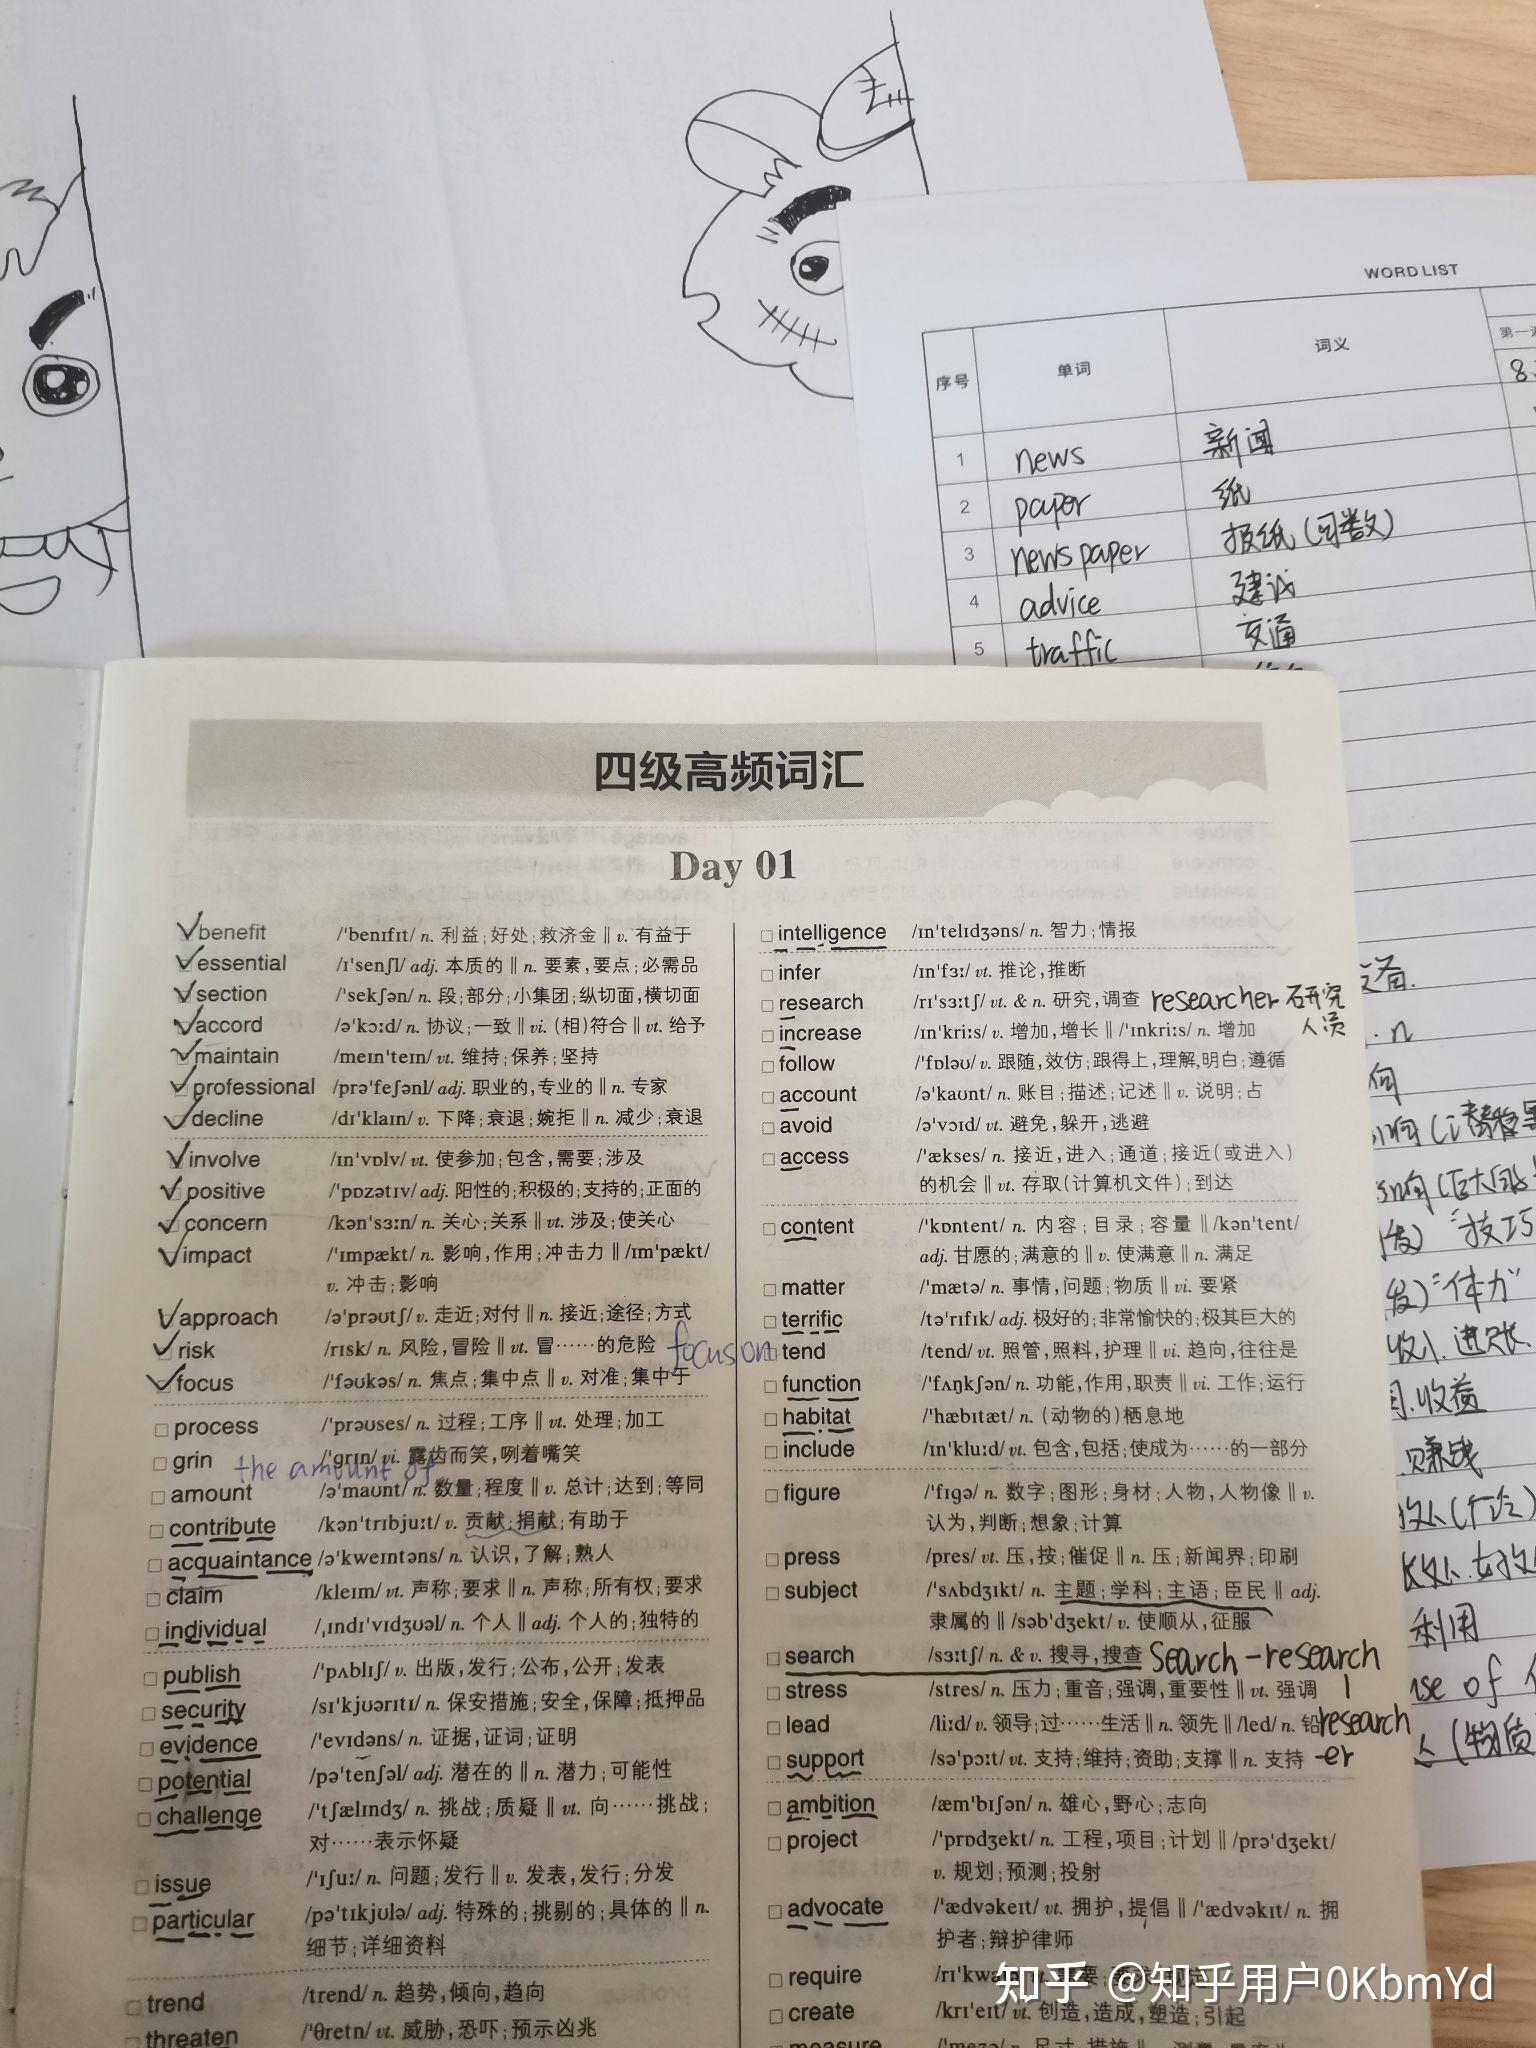 WORD LIST
序号 单词 词义 第一
1 news 新闻
2 paper 纸
3 newspaper 报纸(可数)
4 advice 建议
5 traffic 交通
四级高频词汇
Day 01
benefit /ˈbenɪfɪt/ n. 利益;好处;救济金 ‖ v. 有益于
essential /ɪˈsenʃl/ adj. 本质的 ‖ n. 要素,要点;必需品
section /ˈsekʃən/ n. 段;部分;小集团;纵切面,横切面
accord /əˈkɔːd/ n. 协议;一致 ‖ vi. (相)符合 ‖ vt. 给予
maintain /meɪnˈteɪn/ vt. 维持;保养;坚持
professional /prəˈfeʃənl/ adj. 职业的,专业的 ‖ n. 专家
decline /dɪˈklaɪn/ v. 下降;衰退;婉拒 ‖ n. 减少;衰退
involve /ɪnˈvɒlv/ vt. 使参加;包含,需要;涉及
positive /ˈpɒzətɪv/ adj. 阳性的;积极的;支持的;正面的
concern /kənˈsɜːn/ n. 关心;关系 ‖ vt. 涉及;使关心
impact /ˈɪmpækt/ n. 影响,作用;冲击力 ‖ /ɪmˈpækt/
v. 冲击;影响
approach /əˈprəʊtʃ/ v. 走近;对付 ‖ n. 接近;途径;方式
risk /rɪsk/ n. 风险,冒险 ‖ vt. 冒……的危险 focus on
focus /ˈfəʊkəs/ n. 焦点;集中点 ‖ v. 对准;集中于
process /ˈprəʊses/ n. 过程;工序 ‖ vt. 处理;加工
grin /ˈgrɪn/ vi. 露齿而笑,咧着嘴笑
the amount of
amount /əˈmaʊnt/ n. 数量;程度 ‖ v. 总计;达到;等同
contribute /kənˈtrɪbjuːt/ v. 贡献;捐献;有助于
acquaintance /əˈkweɪntəns/ n. 认识,了解;熟人
claim /kleɪm/ vt. 声称;要求 ‖ n. 声称;所有权;要求
individual /ˌɪndɪˈvɪdʒʊəl/ n. 个人 ‖ adj. 个人的;独特的
publish /ˈpʌblɪʃ/ v. 出版,发行;公布,公开;发表
security /sɪˈkjʊərɪtɪ/ n. 保安措施;安全,保障;抵押品
evidence /ˈevɪdəns/ n. 证据,证词;证明
potential /pəˈtenʃəl/ adj. 潜在的 ‖ n. 潜力;可能性
challenge /ˈtʃælɪndʒ/ n. 挑战;质疑 ‖ vt. 向……挑战;
对……表示怀疑
issue /ˈɪʃuː/ n. 问题;发行 ‖ v. 发表,发行;分发
particular /pəˈtɪkjʊlə/ adj. 特殊的;挑剔的;具体的 ‖ n.
细节;详细资料
trend /trend/ n. 趋势,倾向,趋向
threaten /ˈθretn/ vt. 威胁,恐吓;预示凶兆
intelligence /ɪnˈtelɪdʒəns/ n. 智力;情报
infer /ɪnˈfɜː/ vt. 推论,推断
research /rɪˈsɜːtʃ/ vt. & n. 研究,调查 researcher 研究
人员
increase /ɪnˈkriːs/ v. 增加,增长 ‖ /ˈɪnkriːs/ n. 增加
follow /ˈfɒləʊ/ v. 跟随,效仿;跟得上,理解,明白;遵循
account /əˈkaʊnt/ n. 账目;描述;记述 ‖ v. 说明;占
avoid /əˈvɔɪd/ vt. 避免,躲开,逃避
access /ˈækses/ n. 接近,进入;通道;接近(或进入)
的机会 ‖ vt. 存取(计算机文件);到达
content /ˈkɒntent/ n. 内容;目录;容量 ‖ /kənˈtent/
adj. 甘愿的;满意的 ‖ v. 使满意 ‖ n. 满足
matter /ˈmætə/ n. 事情,问题;物质 ‖ vi. 要紧
terrific /təˈrɪfɪk/ adj. 极好的;非常愉快的;极其巨大的
tend /tend/ vt. 照管,照料,护理 ‖ vi. 趋向,往往是
function /ˈfʌŋkʃən/ n. 功能,作用,职责 ‖ vi. 工作;运行
habitat /ˈhæbɪtæt/ n. (动物的)栖息地
include /ɪnˈkluːd/ vt. 包含,包括;使成为……的一部分
figure /ˈfɪgə/ n. 数字;图形;身材;人物,人物像 ‖ v.
认为,判断;想象;计算
press /pres/ vt. 压,按;催促 ‖ n. 压;新闻界;印刷
subject /ˈsʌbdʒɪkt/ n. 主题;学科;主语;臣民 ‖ adj.
隶属的 ‖ /səbˈdʒekt/ v. 使顺从,征服
search /sɜːtʃ/ n. & v. 搜寻,搜查 Search - research
stress /stres/ n. 压力;重音;强调,重要性 ‖ vt. 强调
lead /liːd/ v. 领导;过……生活 ‖ n. 领先 ‖ /led/ n. 铅 research
support /səˈpɔːt/ vt. 支持;维持;资助;支撑 ‖ n. 支持 -er
ambition /æmˈbɪʃən/ n. 雄心,野心;志向
project /ˈprɒdʒekt/ n. 工程,项目;计划 ‖ /prəˈdʒekt/
v. 规划;预测;投射
advocate /ˈædvəkeɪt/ vt. 拥护,提倡 ‖ /ˈædvəkɪt/ n. 拥
护者;辩护律师
require
create /krɪˈeɪt/ vt. 创造,造成,塑造;引起
measure
设备.
. n
何
技巧
体力
收入.进账.
收益
.赚钱
利用
use of
(物质
知乎 @知乎用户0KbmYd